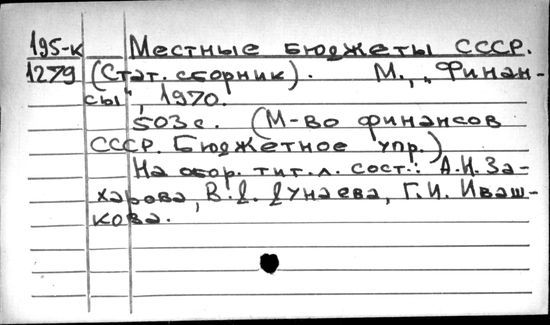 195-к Местные бюджеты СССР.
1279 (Стат. сборник). М., „Финан-
сы", 1970.
503с. (М-во финансов
СССР. Бюджетное упр.)
На обор. тит. л. сост.: А.И. За-
харова, В.Д. Дунаева, Г.И. Иваш-
кова.